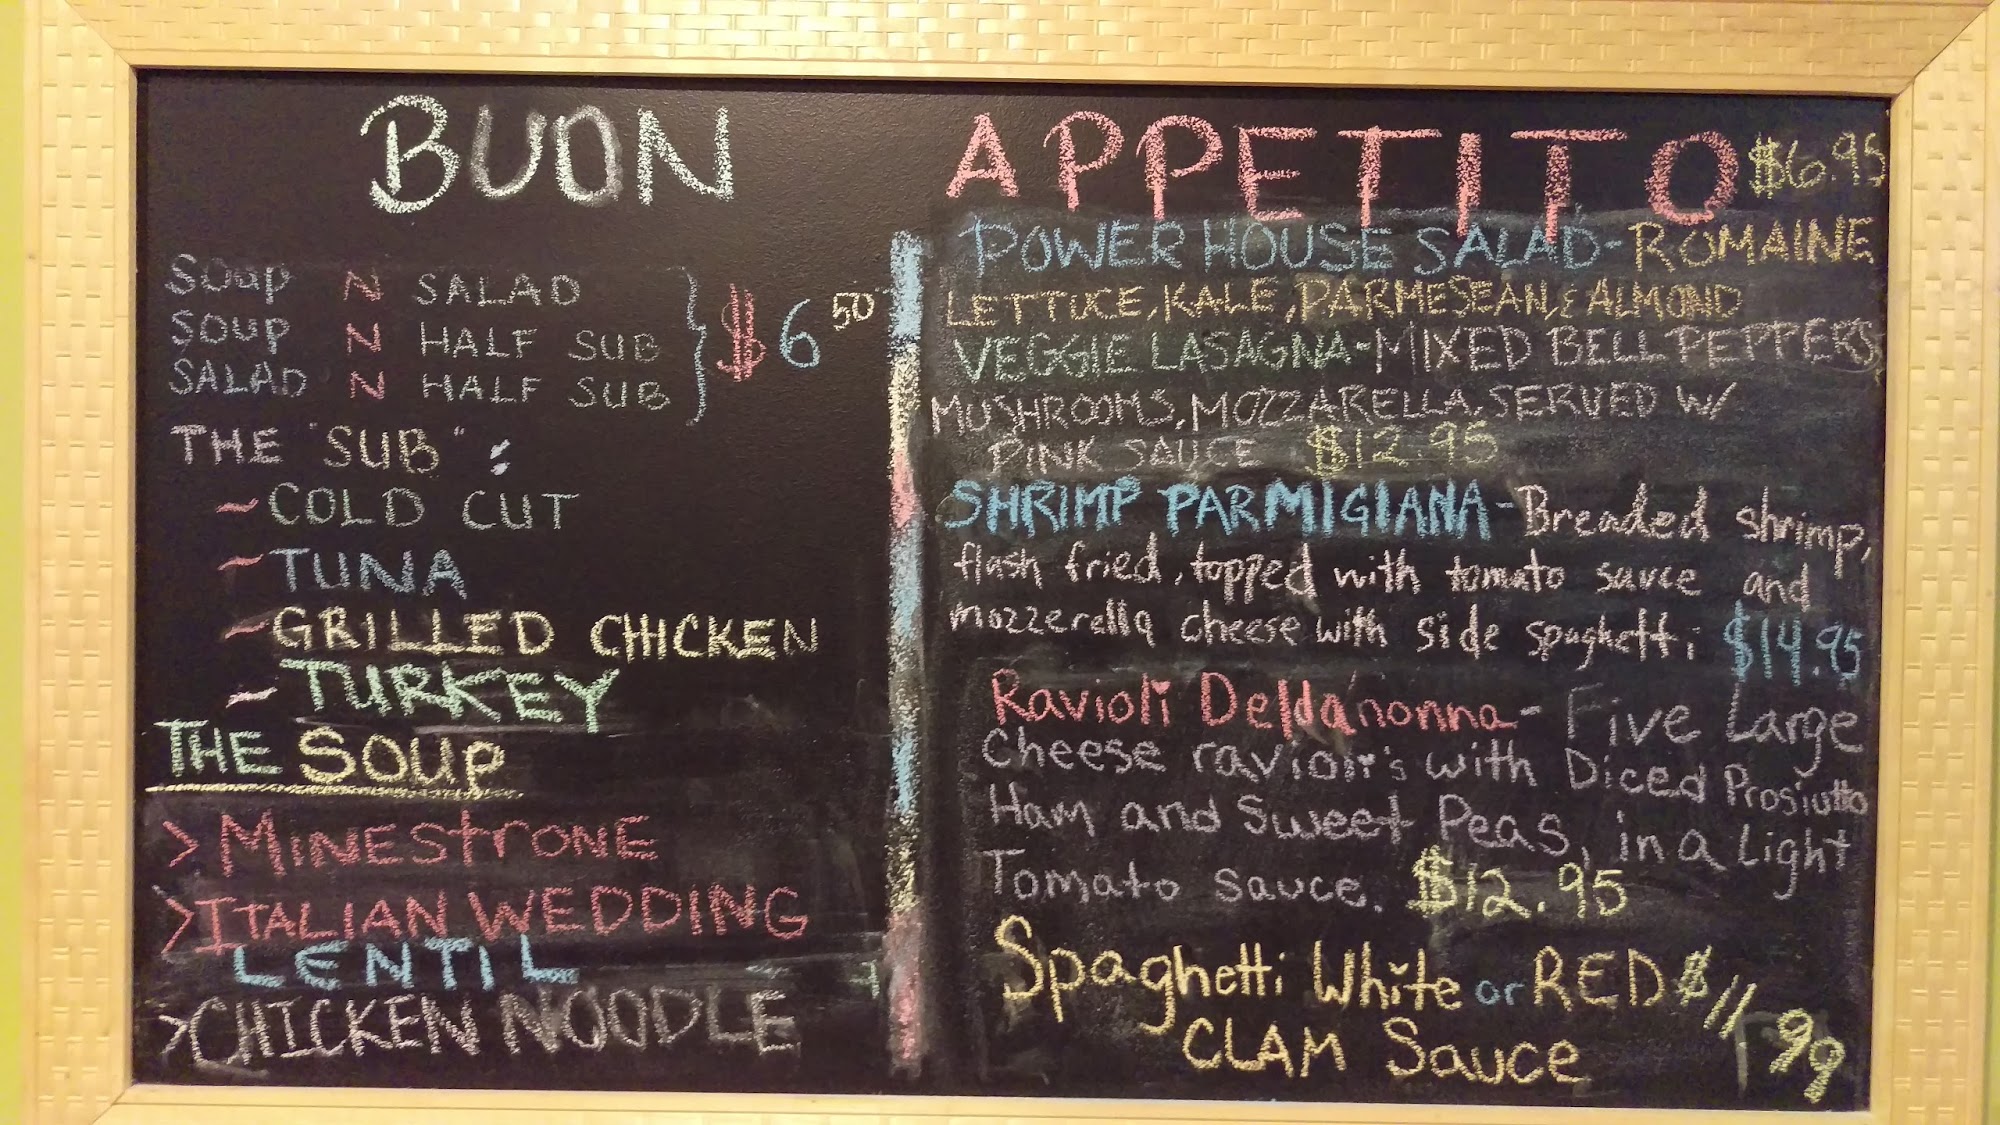 BUON APPETITO
SOUP N SALAD
SOUP N HALF SUB
SALAD N HALF SUB
} $6 50
THE "SUB":
~COLD CUT
~TUNA
~GRILLED CHICKEN
~TURKEY
THE SOUP
>MINESTRONE
>ITALIAN WEDDING
LENTIL
>CHICKEN NOODLE
$6.95
POWER HOUSE SALAD-ROMAINE
LETTUCE, KALE, PARMESEAN, & ALMOND
VEGGIE LASAGNA-MIXED BELL PEPPERS
MUSHROOMS, MOZZARELLA. SERVED W/
PINK SAUCE $12.95
SHRIMP PARMIGIANA-Breaded shrimp,
flash fried, topped with tomato sauce and
mozzerella cheese with side spaghetti $14.95
Ravioli Delldanonna- Five Large
Cheese ravioli's with Diced Prosiutto
Ham and Sweet Peas, in a Light
Tomato sauce. $12.95
Spaghetti White or RED $11.99
CLAM Sauce